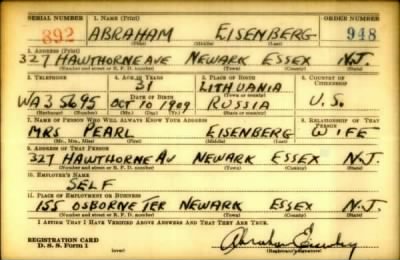 SERIAL NUMBER 1. NAME (Print) ORDER NUMBER
892 ABRAHAM EISENBERG 948
(First) (Middle) (Last)
2. ADDRESS (Print)
327 HAWTHORNE AVE NEWARK ESSEX N.J.
(Number and street or R. F. D. number) (Town) (County) (State)
3. TELEPHONE 4. AGE IN YEARS 5. PLACE OF BIRTH 6. COUNTRY OF CITIZENSHIP
31 LITHUANIA
DATE OF BIRTH (Town or county)
WA 3 5695 OCT 10 1909 RUSSIA U.S.
(Exchange) (Number) (Mo.) (Day) (Yr.) (State or country)
7. NAME OF PERSON WHO WILL ALWAYS KNOW YOUR ADDRESS 8. RELATIONSHIP OF THAT PERSON
MRS PEARL EISENBERG WIFE
(Mr., Mrs., Miss) (First) (Middle) (Last)
9. ADDRESS OF THAT PERSON
327 HAWTHORNE AV NEWARK ESSEX N.J.
(Number and street or R. F. D. number) (Town) (County) (State)
10. EMPLOYER'S NAME
SELF
11. PLACE OF EMPLOYMENT OR BUSINESS
155 OSBORNE TER NEWARK ESSEX N.J.
(Number and street or R. F. D. number) (Town) (County) (State)
I AFFIRM THAT I HAVE VERIFIED ABOVE ANSWERS AND THAT THEY ARE TRUE.
REGISTRATION CARD Abraham Eisenberg
D. S. S. Form 1 (over) (Registrant's signature)